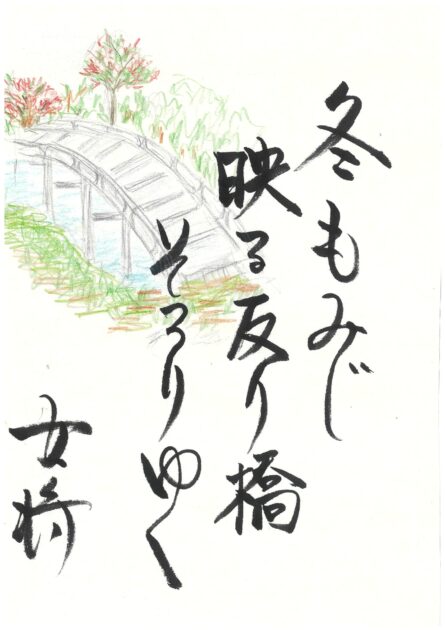 冬もみじ
映る反り橋
そろりゆく
女将